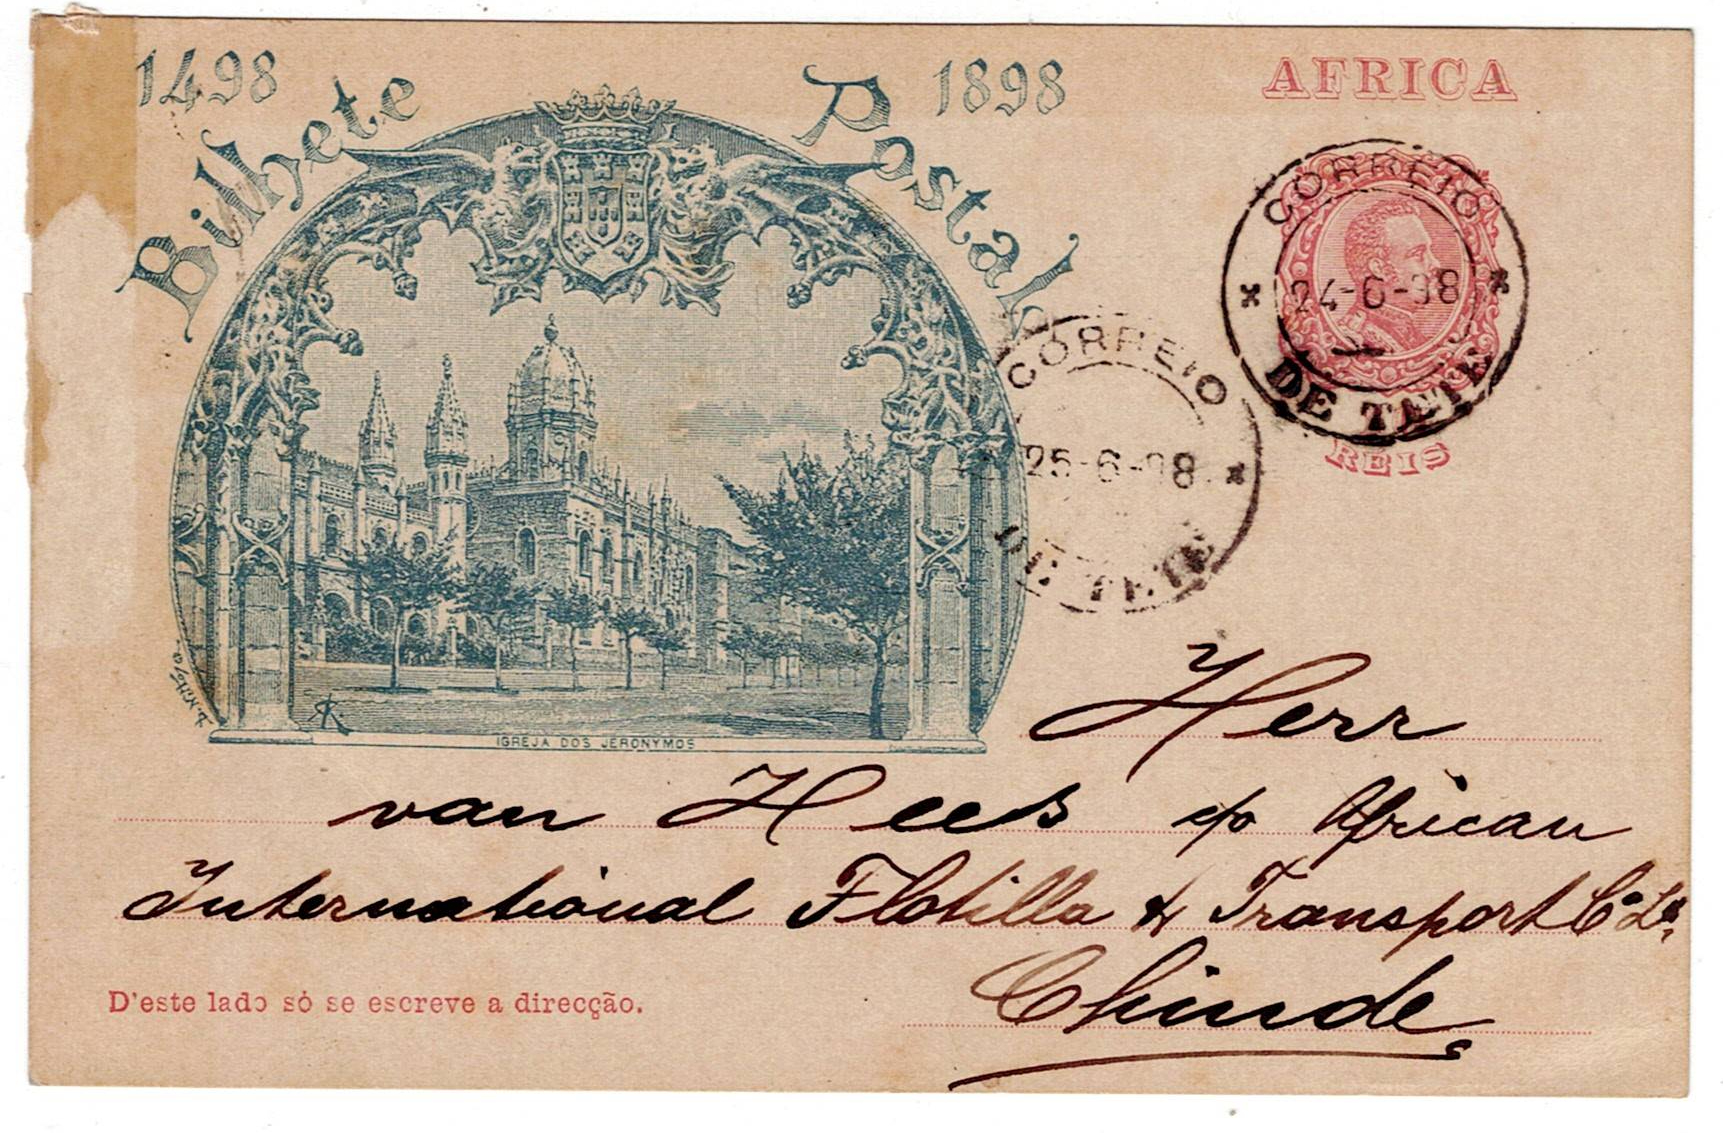 1498
Bilhete Postal
1898
AFRICA
CORREIO
24-6-98
DE TETE
REIS
CORREIO
25-6-98
DE TETE
IGREJA DOS JERONYMOS
Herr
van Hees c/o African
International Flotilla & Transport Co Ld,
Chinde
D'este lado só se escreve a direcção.